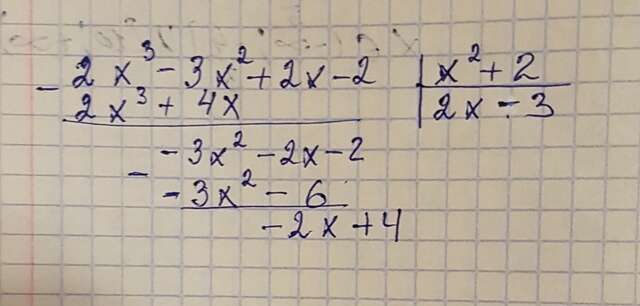 - 2x³ - 3x² + 2x - 2 | x² + 2
2x³ + 4x | 2x - 3
- -3x² - 2x - 2
-3x² - 6
-2x + 4